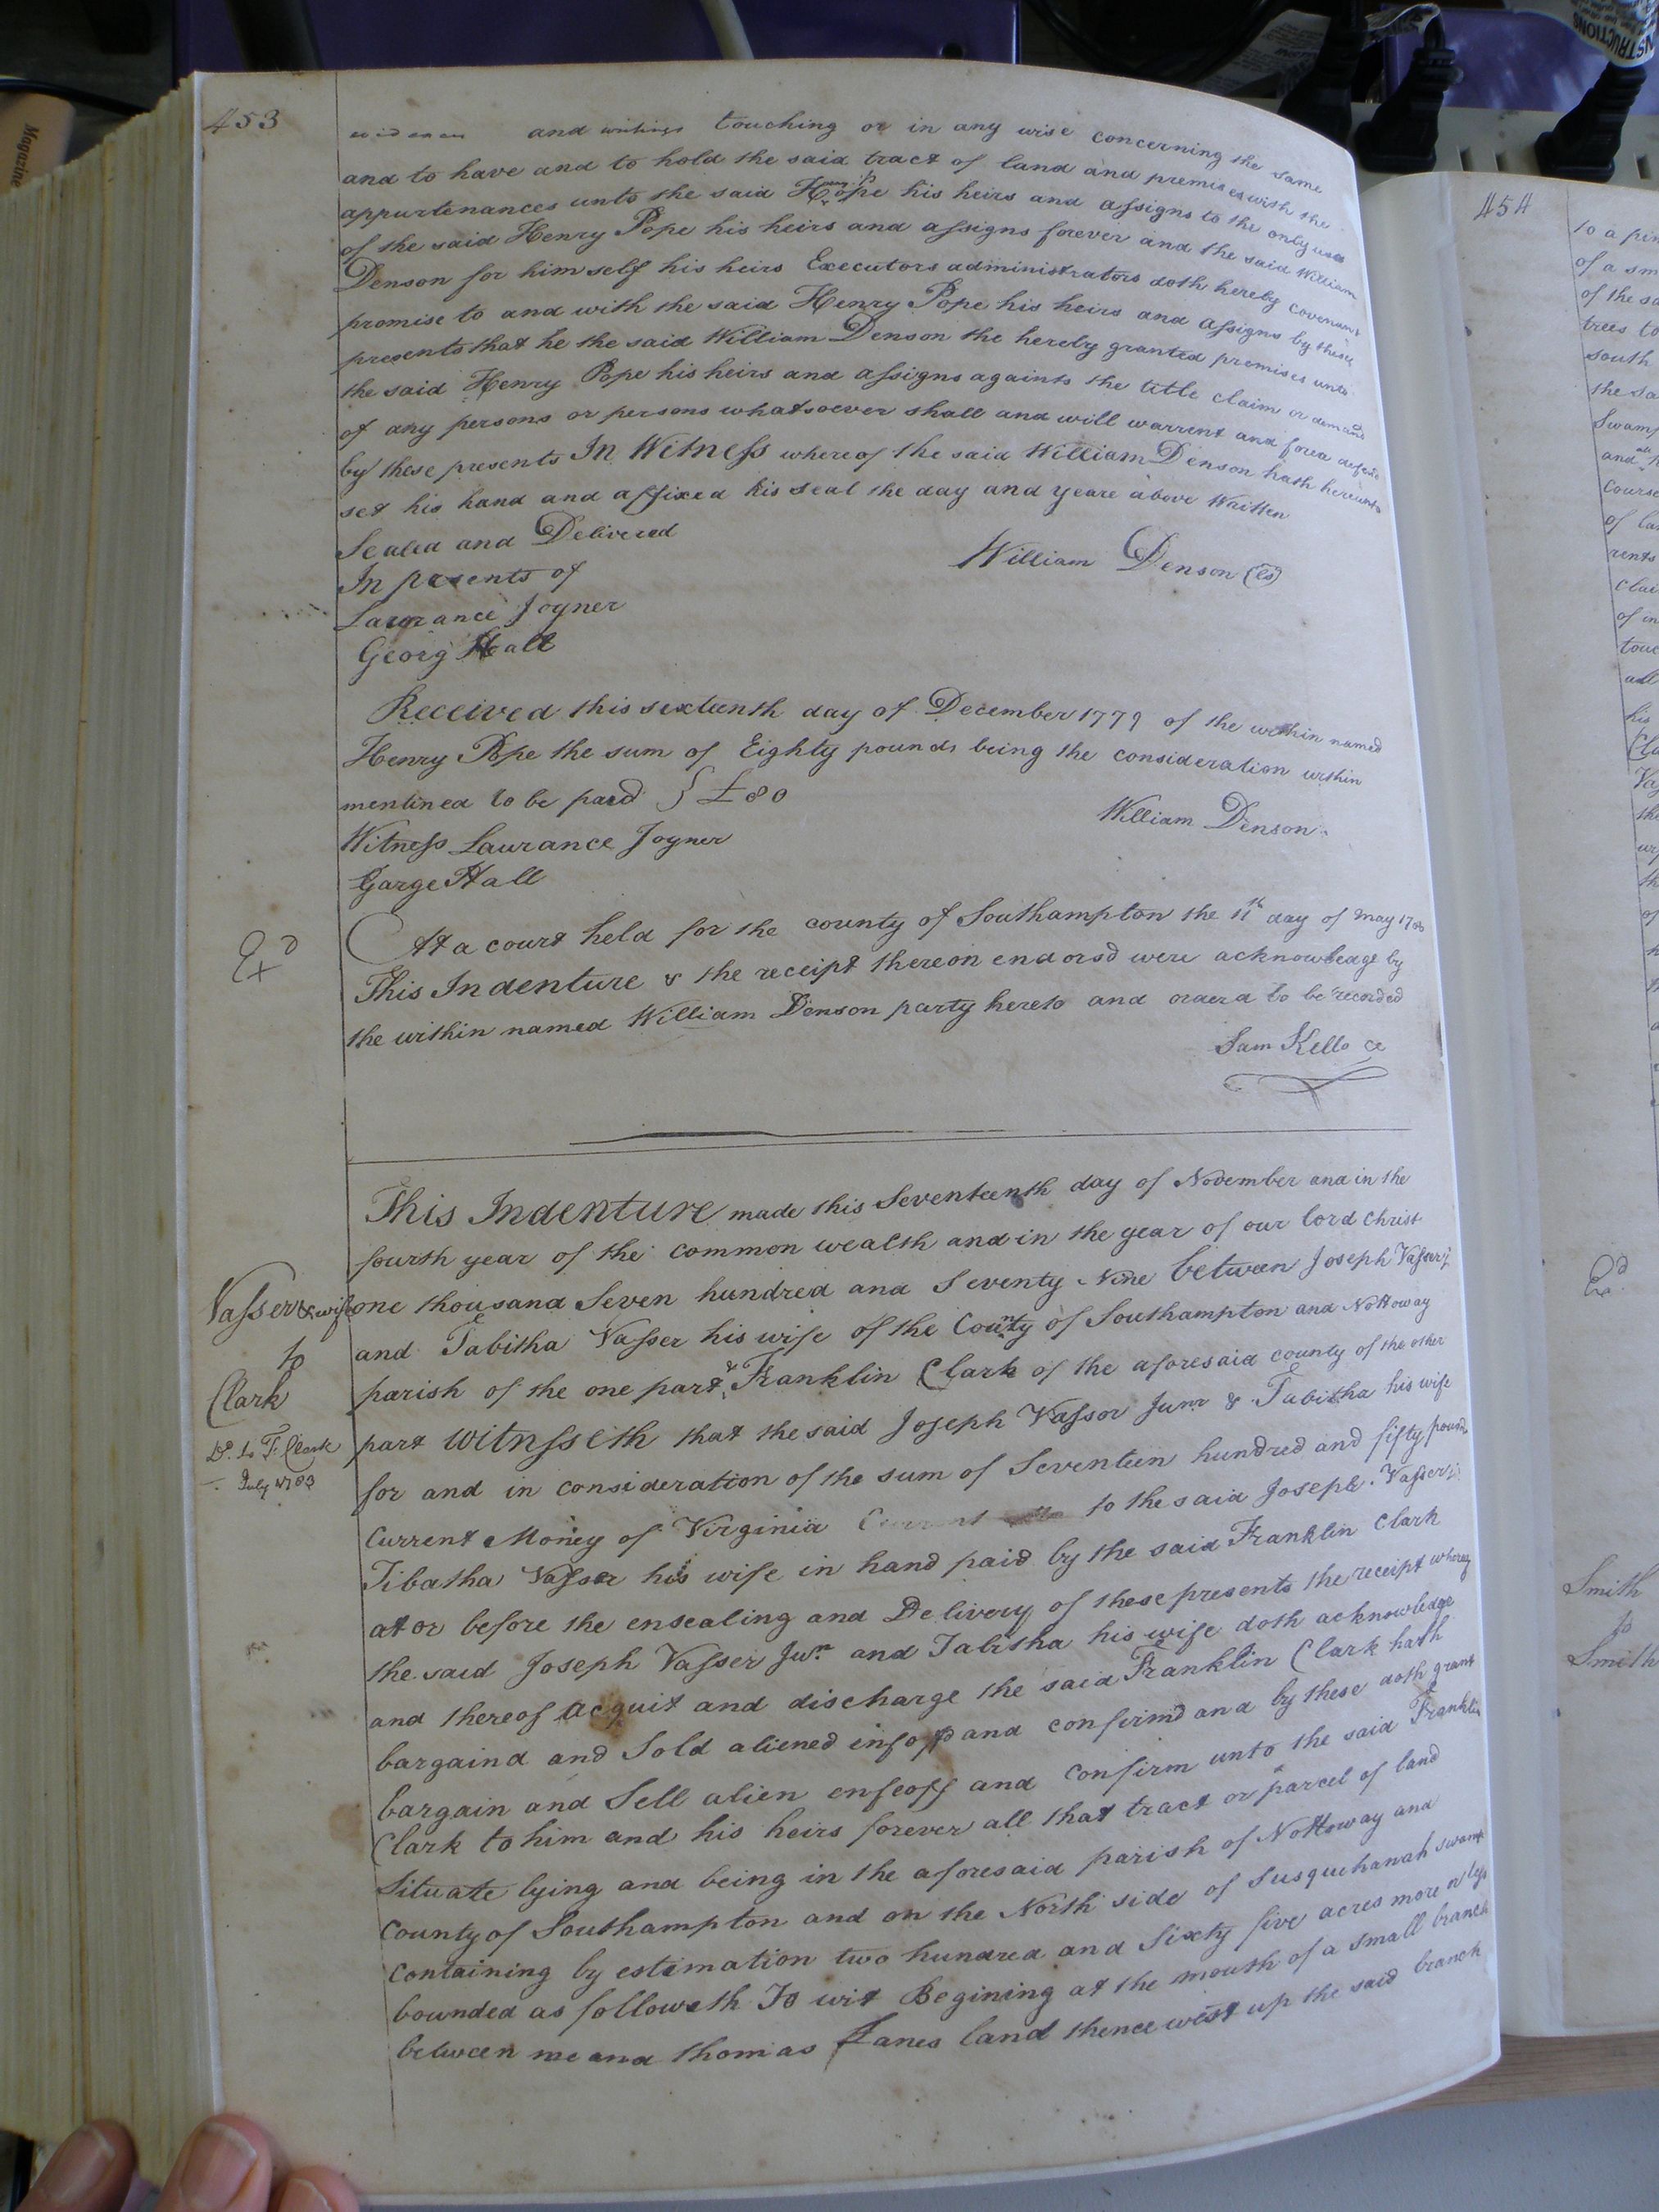 453
and writings touching or in any wise concerning the same
and to have and to hold the said tract of land and premises with the
appurtenances unto the said Henry Pope his heirs and assigns to the only use
of the said Henry Pope his heirs and assigns forever and the said William
Denson for himself his heirs Executors administrators doth hereby covenant
promise to and with the said Henry Pope his heirs and assigns by these
presents that he the said William Denson the hereby granted premises unto
the said Henry Pope his heirs and assigns againts the title claim or demand
of any persons or persons whatsoever shall and will warrent and forea defend
by these presents In Witness whereof the said William Denson hath hereunto
set his hand and affixed his seal the day and yeare above Written
Sealed and Delivered
William Denson (LS)
In presents of
Laurance Joyner
Georg Hall
Received this sexteenth day of December 1779 of the within named
Henry Pope the sum of Eighty pounds being the consideration within
mentined to be paid } £80
William Denson
Witness Laurance Joyner
Garge Hall
Exd
At a court held for the county of Southampton the 11th day of May 1780
This Indenture & the receipt thereon endorsd were acknowledge by
the within named William Denson party hereto and orderd to be recorded
Sam Kello CC
This Indenture made this Seventeenth day of November and in the
fourth year of the common wealth and in the year of our lord Christ
Vasser & wife
one thousand Seven hundred and Seventy Nine between Joseph Vasser Jr
and Tabitha Vasser his wife of the County of Southampton and Nottoway
to
parish of the one part & Franklin Clark of the aforesaid county of the other
Clark
part Witnsseth that the said Joseph Vassor Junr & Tabitha his wife
Dd. to F. Clark
July 1783
for and in consideration of the sum of Seventeen hundred and fifty pound
Current Money of Virginia to the said Joseph Vasser Jr
Tibatha Vasser his wife in hand paid by the said Franklin Clark
at or before the ensealing and Delivery of these presents the receipt whereof
the said Joseph Vasser Jur. and Tabitha his wife doth acknowledge
and thereof acquit and discharge the said Franklin Clark hath
bargaind and Sold aliened and confirmd and by these doth grant
bargain and Sell alien enfeoff and confirm unto the said Franklin
Clark to him and his heirs forever all that tract or parcel of land
Situate lying and being in the aforesaid parish of Nottoway and
County of Southampton and on the North side of Susquehanah swamp
Containing by estimation two hundred and Sixty five acres more or less
bounded as followeth To wit Begining at the mouth of a small branch
between me and thomas Lanes land thence west up the said branch
454
to a pin
of a sm
of the sa
trees to
south
the sa
Swamp
and all
Course
of la
rents
clai
of in
touc
all
his
Cla
Vas
the
Exd
Smith
to
Smith